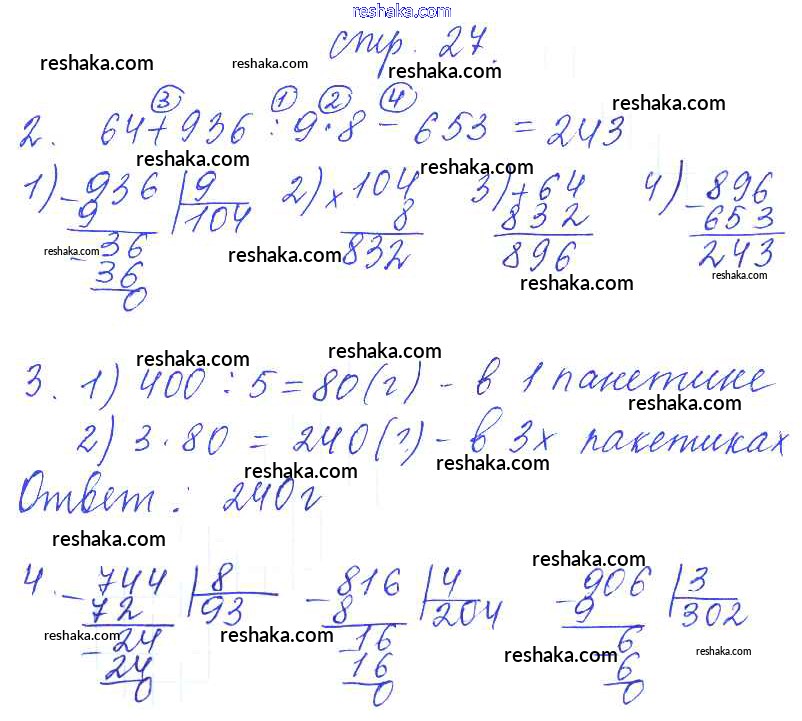 reshaka.com
стр. 27.
reshaka.com reshaka.com reshaka.com
③ ① ② ④
reshaka.com
2. 64+936:9·8-653=243
reshaka.com reshaka.com
1) -936 |9 2) ×104 3) +64 4) -896
9 104 8 832 653
-36 832 896 243
reshaka.com reshaka.com reshaka.com reshaka.com
36
0
reshaka.com reshaka.com
3. 1) 400:5=80(г) - в 1 пакетике
reshaka.com
2) 3·80=240(г) - в 3х пакетиках
reshaka.com reshaka.com
Ответ: 240г
reshaka.com reshaka.com
4. -744 |8 -816 |4 -906 |3
72 93 8 204 9 302
-24 -16 -6
reshaka.com reshaka.com reshaka.com reshaka.com
24 16 6
0 0 0